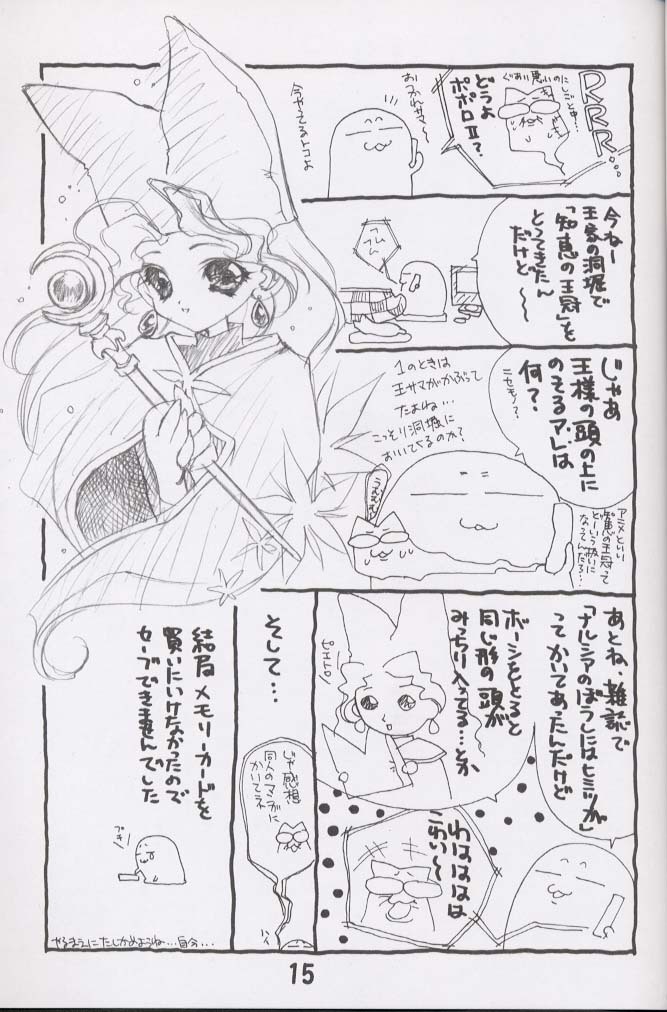 RRR…
ぐあい悪いのにしごと中…
どうよ
ポポロⅡ?
おつかれサマ〜
今やってるトコよ
今ねー
王家の洞堀で
「知恵の王冠」を
とってきたん
だけど〜〜
ふんふん
じゃあ
王様の頭の上に
のってるアレは
何?
ニセモノ?
1のときは
王サマがかぶって
たよね…
こっそり洞堀に
おいてくるのか?
うむむむ
アニメといい
知恵の王冠って
どーいう扱いに
なってんだろ…
あとね、雑誌で
「ナルシアのぼうしにはヒミツが」
ってかいてあったんだけど
ボーシをとると
同じ形の頭が
みっちり入ってる…とか
ピエトロ
わはははは
こわい〜
そして…
じゃ感想
同人のマンガに
かいてネ
ハイ
結局メモリーカードを
買いにいけなかったので
セーブできませんでした
プキー
やるまえにたしかめようね…自分…
15